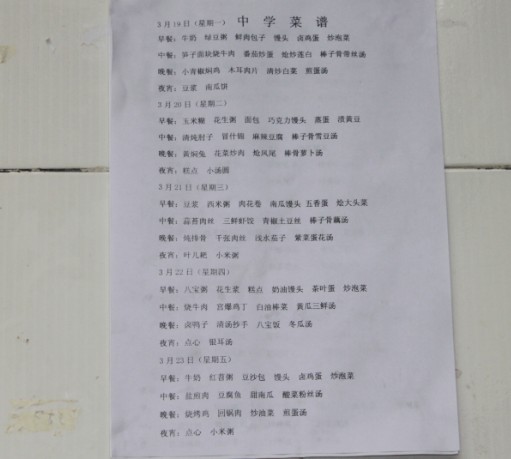 3月19日（星期一） 中学菜谱
早餐：牛奶 绿豆粥 鲜肉包子 馒头 卤鸡蛋 炒泡菜
中餐：笋子面块烧牛肉 番茄炒蛋 烩炒莲白 棒子骨带丝汤
晚餐：小青椒焖鸡 木耳肉片 清炒白菜 煎蛋汤
夜宵：豆浆 南瓜饼
3月20日（星期二）
早餐：玉米糊 花生粥 面包 巧克力馒头 蒸蛋 渍黄豆
中餐：清炖肘子 冒什锦 麻辣豆腐 棒子骨雪豆汤
晚餐：黄焖兔 花菜炒肉 烩凤尾 棒骨萝卜汤
夜宵：糕点 小汤圆
3月21日（星期三）
早餐：豆浆 西米粥 肉花卷 南瓜馒头 五香蛋 烩大头菜
中餐：蒜苔肉丝 三鲜虾饺 青椒土豆丝 棒子骨藕汤
晚餐：炖排骨 千张肉丝 浅水茄子 紫菜蛋花汤
夜宵：叶儿粑 小米粥
3月22日（星期四）
早餐：八宝粥 花生浆 糕点 奶油馒头 茶叶蛋 炒泡菜
中餐：烧牛肉 宫爆鸡丁 白油棒菜 黄瓜三鲜汤
晚餐：卤鸭子 清汤抄手 八宝饭 冬瓜汤
夜宵：点心 银耳汤
3月23日（星期五）
早餐：牛奶 红苕粥 豆沙包 馒头 卤鸡蛋 炒泡菜
中餐：盐煎肉 豆腐鱼 甜南瓜 酸菜粉丝汤
晚餐：烧烤鸡 回锅肉 炒油菜 煎蛋汤
夜宵：点心 小米粥